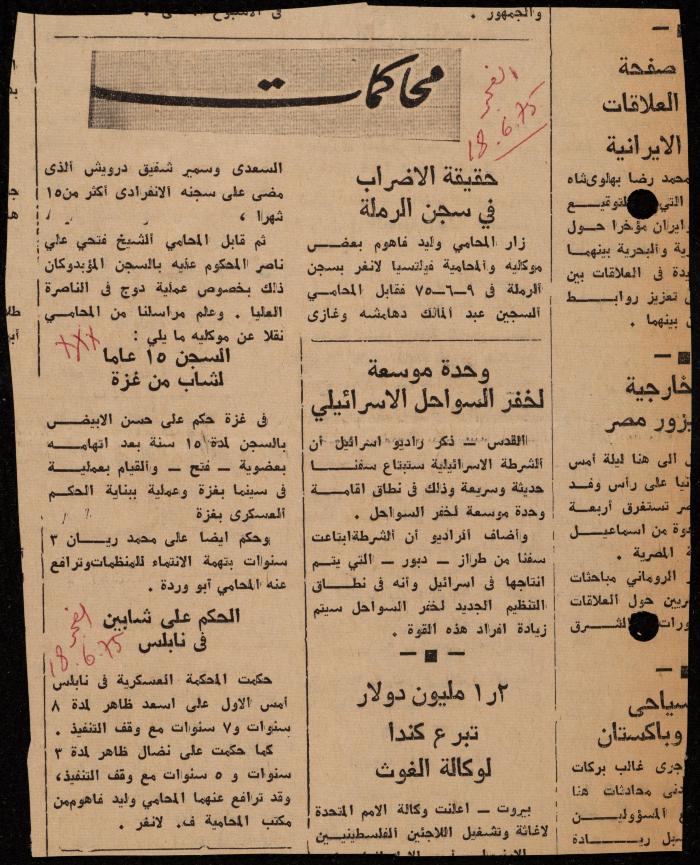 والجمهور .
محاكمات
الفجر
18.6.75
حقيقة الاضراب
في سجن الرملة
زار المحامي وليد فاهوم بعض
موكليه والمحامية فولتسيا لانغر بسجن
الرملة في ٩-٦-٧٥ فقابل المحامي
السجين عبد المالك دهامشه وغازى
السعدى وسمير شفيق درويش الذى
مضى على سجنه الانفرادى أكثر من ١٥
شهرا ،
ثم قابل المحامي الشيخ فتحي علي
ناصر المحكوم عليه بالسجن المؤبد وكان
ذلك بخصوص عملية دوج فى الناصرة
العليا . وعلم مراسلنا من المحامي
نقلا عن موكليه ما يلي :
xxx
السجن ١٥ عاما
لشاب من غزة
فى غزة حكم على حسن الابيض
بالسجن لمدة ١٥ سنة بعد اتهامه
بعضوية – فتح – والقيام بعملية
فى سينما بغزة وعملية ببناية الحكم
العسكرى بغزة
وحكم ايضا على محمد ريان ٣
سنوات بتهمة الانتماء للمنظمات وترافع
عنه المحامي أبو وردة .
الحكم على شابين
فى نابلس
الفجر
18.6.75
حكمت المحكمة العسكرية فى نابلس
أمس الاول على اسعد ظاهر لمدة ٨
سنوات و٧ سنوات مع وقف التنفيذ .
كما حكمت على نضال ظاهر لمدة ٣
سنوات و ٥ سنوات مع وقف التنفيذ،
وقد ترافع عنهما المحامي وليد فاهوم من
مكتب المحامية ف. لانغر .
وحدة موسعة
لخفر السواحل الاسرائيلي
القدس – ذكر راديو اسرائيل أن
الشرطة الاسرائيلية ستبتاع سفنا
حديثة وسريعة وذلك فى نطاق اقامة
وحدة موسعة لخفر السواحل .
وأضاف الراديو أن الشرطة ابتاعت
سفنا من طراز – دبور – التي يتم
انتاجها فى اسرائيل وأنه فى نطاق
التنظيم الجديد لخفر السواحل سيتم
زيادة افراد هذه القوة .
٢ر١ مليون دولار
تبرع كندا
لوكالة الغوث
بيروت – اعلنت وكالة الامم المتحدة
لاغاثة وتشغيل اللاجئين الفلسطينيين
صفحة
العلاقات
الايرانية
محمد رضا بهلوى شاه
التي لتوقيع
وايران مؤخرا حول
رية والبحرية بينهما
يدة فى العلاقات بين
تعزيز روابط
بينهما .
خارجية
يزور مصر
الى هنا ليلة أمس
انيا على رأس وفد
تستغرق أربعة
دوة من اسماعيل
المصرية .
الروماني مباحثات
ريين حول العلاقات
ورات الشرق
سياحى
وباكستان
جرى غالب بركات
دنى محادثات هنا
المسؤولين
سبل زيادة